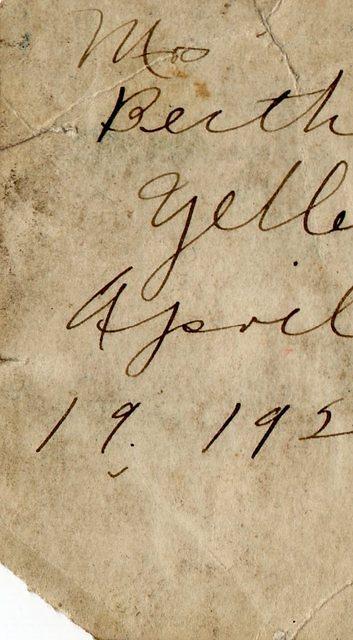 Mrs
Berth
Yelle
April
19. 192